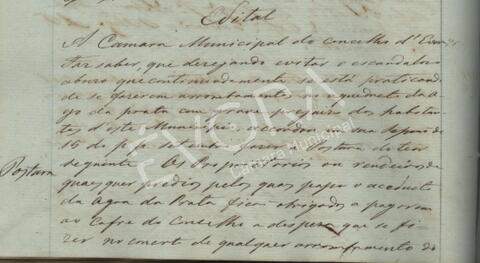 Edital
A Camara Municipal do concelho d'Evora
faz saber, que desejando evitar o escandaloso
abuso que continuadamente se está pratican
do de se fazerem arrombamentos no aqueducto da A
goa da prata com grave prejuizo dos habitan
tes d'este Municipio, accordou em sua sessão de
15 de
seguinte Os Proprietarios ou rendeiros de
Postura
quaesquer predios pelos quaes passa o aqueducto
da Agoa da Prata ficão obrigados a pagarem
ao Cofre do Concelho a despeza que se fi
zer no concerto de qualquer arrombamento do
EVORA
Câmara Municipal